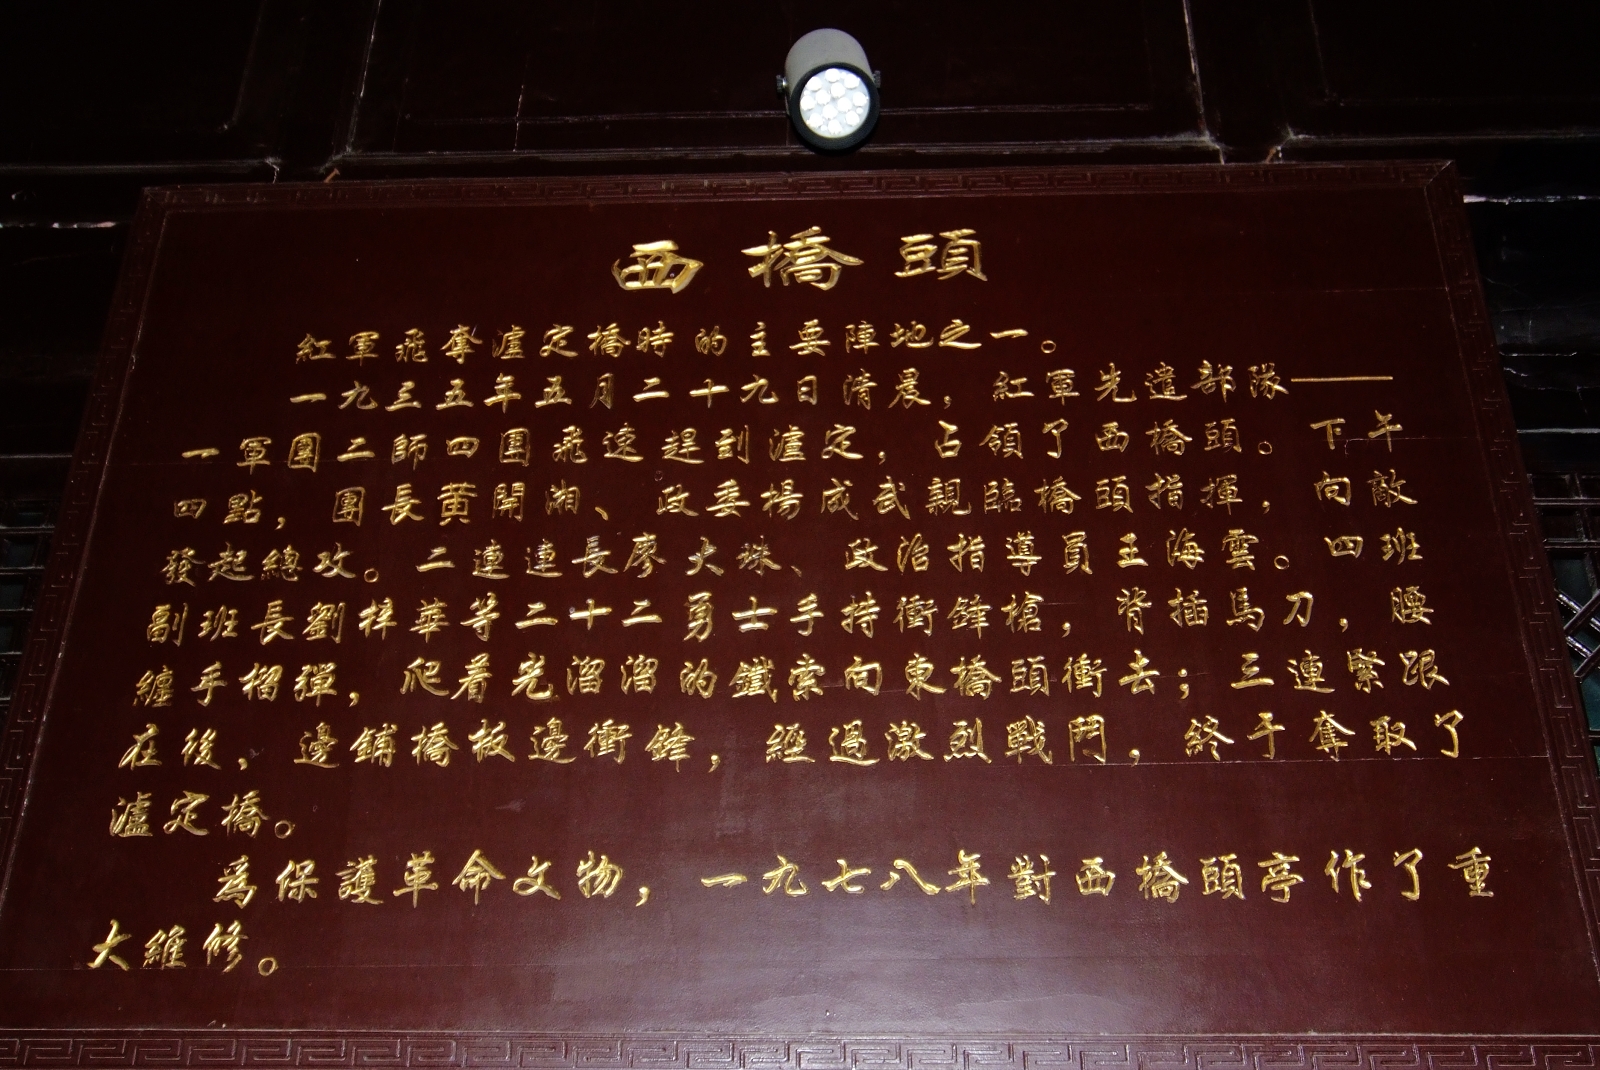 西橋頭
紅軍飛奪瀘定橋時的主要陣地之一。
一九三五年五月二十九日清晨，紅軍先遣部隊——
一軍團二師四團飛速趕到瀘定，占領了西橋頭。下午
四點，團長黃開湘、政委楊成武親臨橋頭指揮，向敵
發起總攻。二連連長廖大珠、政治指導員王海雲。四班
副班長劉梓華等二十二勇士手持衝鋒槍，背插馬刀，腰
纏手榴彈，爬着光溜溜的鐵索向東橋頭衝去；三連緊跟
在後，邊鋪橋板邊衝鋒，經過激烈戰鬥，終于奪取了
瀘定橋。
為保護革命文物，一九七八年對西橋頭亭作了重
大維修。